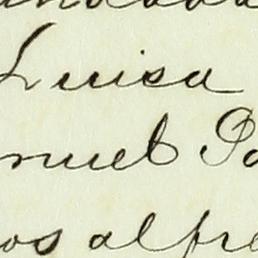 Luisa
nuel Pa
os alfre